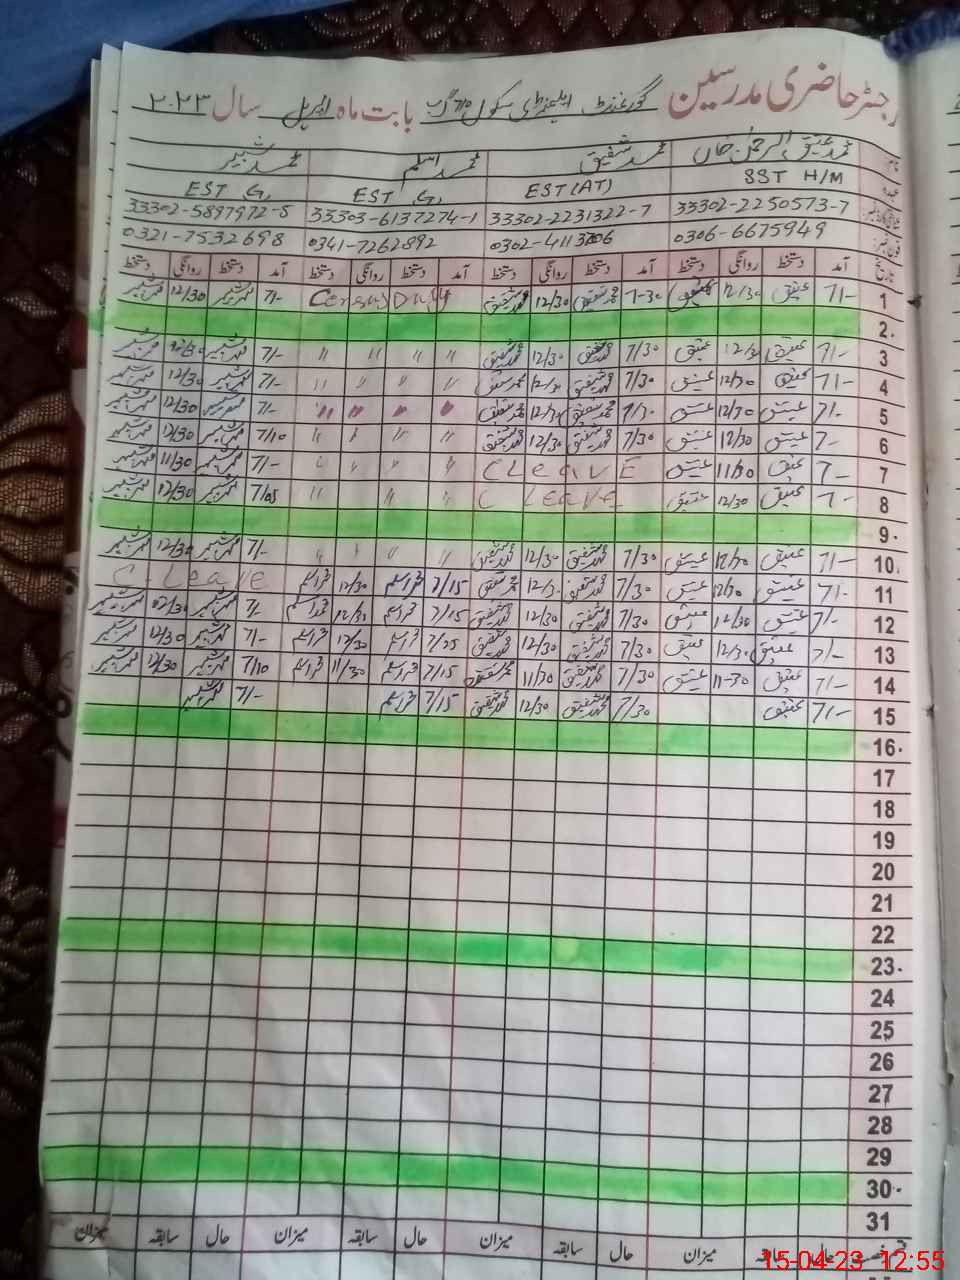 رجسٹر حاضری مدرسین گورنمنٹ ایلیمنٹری سکول 710 گ ب بابت ماہ اپریل سال ۲۰۲۳
نام محمد عتیق الرحمٰن خان محمد شفیق محمد اسلم محمد شبیر
عہدہ SST H/M EST (AT) EST G, EST G,
33302-2250573-7 33302-2231322-7 33303-6137274-1 33302-5897972-5
فون نمبر 0306-6675949 0302-4113706 0341-7262892 0321-7532698
تاریخ آمد دستخط روانگی دستخط آمد دستخط روانگی دستخط آمد دستخط روانگی دستخط آمد دستخط روانگی دستخط
1 7/- عتیق 12/30 عتیق 7-30 محمد شفیق 12/30 محمد شفیق Census Duty 7/- محمد شبیر 12/30 محمد شبیر
2.
3 7/- عتیق عتیق 7/30 محمد شفیق 12/30 محمد شفیق " " " " 7/- محمد شبیر 12/30 محمد شبیر
4 7/- عتیق 12/30 عتیق 7/30 محمد شفیق محمد شفیق " " " " 7/- محمد شبیر 12/30 محمد شبیر
5 7/- عتیق 12/30 عتیق محمد شفیق محمد شفیق " " " " 7/- محمد شبیر 12/30 محمد شبیر
6 7- عتیق 12/30 عتیق 7/30 محمد شفیق 12/30 محمد شفیق " " " " 7/10 محمد شبیر 12/30 محمد شبیر
7 7- عتیق 11/30 عتیق C Leave " " " " 7/- محمد شبیر 11/30 محمد شبیر
8 7- عتیق 12/30 عتیق C Leave " " " " 7/05 محمد شبیر 12/30 محمد شبیر
9.
10. 7/- عتیق 12/30 عتیق 7/30 محمد شفیق 12/30 محمد شفیق " " " " 7/- محمد شبیر 12/30 محمد شبیر
11 7/- عتیق 12/30 عتیق 7/30 محمد شفیق محمد شفیق 7/15 محمد اسلم 12/30 محمد اسلم C. Leave
12 7/- عتیق 12/30 عتیق 7/30 محمد شفیق 12/30 محمد شفیق 7/15 محمد اسلم 12/30 محمد اسلم 7/- محمد شبیر محمد شبیر
13 7/- عتیق 12/30 عتیق 7/30 محمد شفیق 12/30 محمد شفیق 7/25 محمد اسلم 12/30 محمد اسلم 7/- محمد شبیر 12/30 محمد شبیر
14 7/- عتیق 11-30 عتیق 7/30 محمد شفیق 11/30 محمد شفیق 7/15 محمد اسلم 11/30 محمد اسلم 7/10 محمد شبیر 12/30 محمد شبیر
15 7/- عتیق 7/30 محمد شفیق 12/30 محمد شفیق 7/15 محمد اسلم 7/- محمد شبیر
16.
17
18
19
20
21
22
23.
24
25
26
27
28
29
30.
31
حال سابقہ میزان حال سابقہ میزان حال سابقہ میزان حال سابقہ میزان
15-04-23 12:55